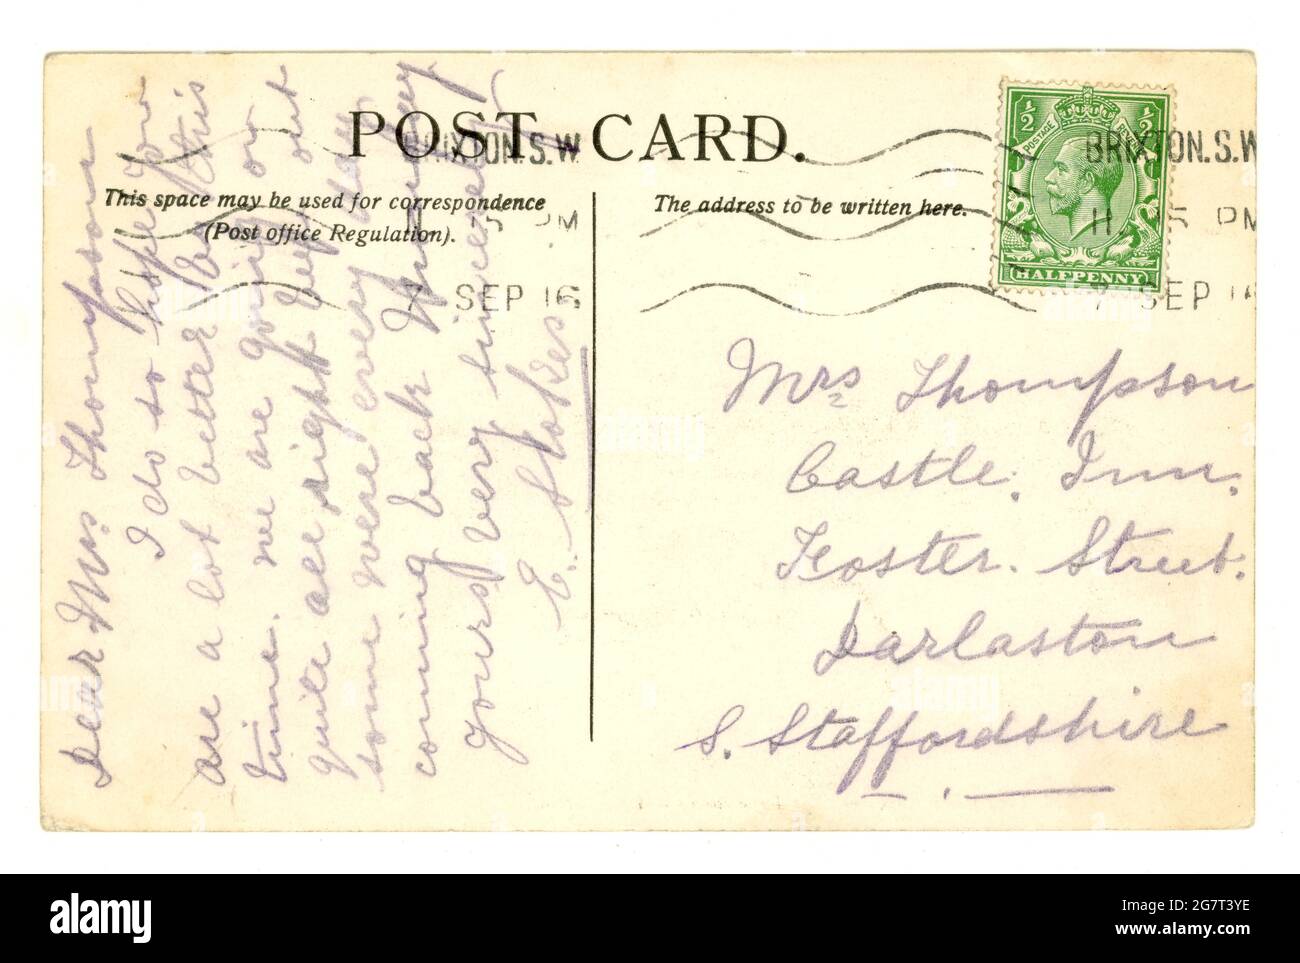 POST CARD.
This space may be used for correspondence
(Post office Regulation).
The address to be written here.
BRIXTON.S.W
11 5 PM
7 SEP 16
BRIXTON.S.W
11 15 PM
7 SEP 16
½ ½
POSTAGE REVENUE
HALFPENNY
Dear Mrs Thompson
I do so hope you
are a lot better by this
time. we are going on
quite all right but
some were every
coming back
yours very sincerely
E. Stokes.
Mrs Thompson
Castle. Inn.
Foster. Street.
Darlaston
S. Staffordshire
alamy
Image ID: 2G7T3YE
www.alamy.com